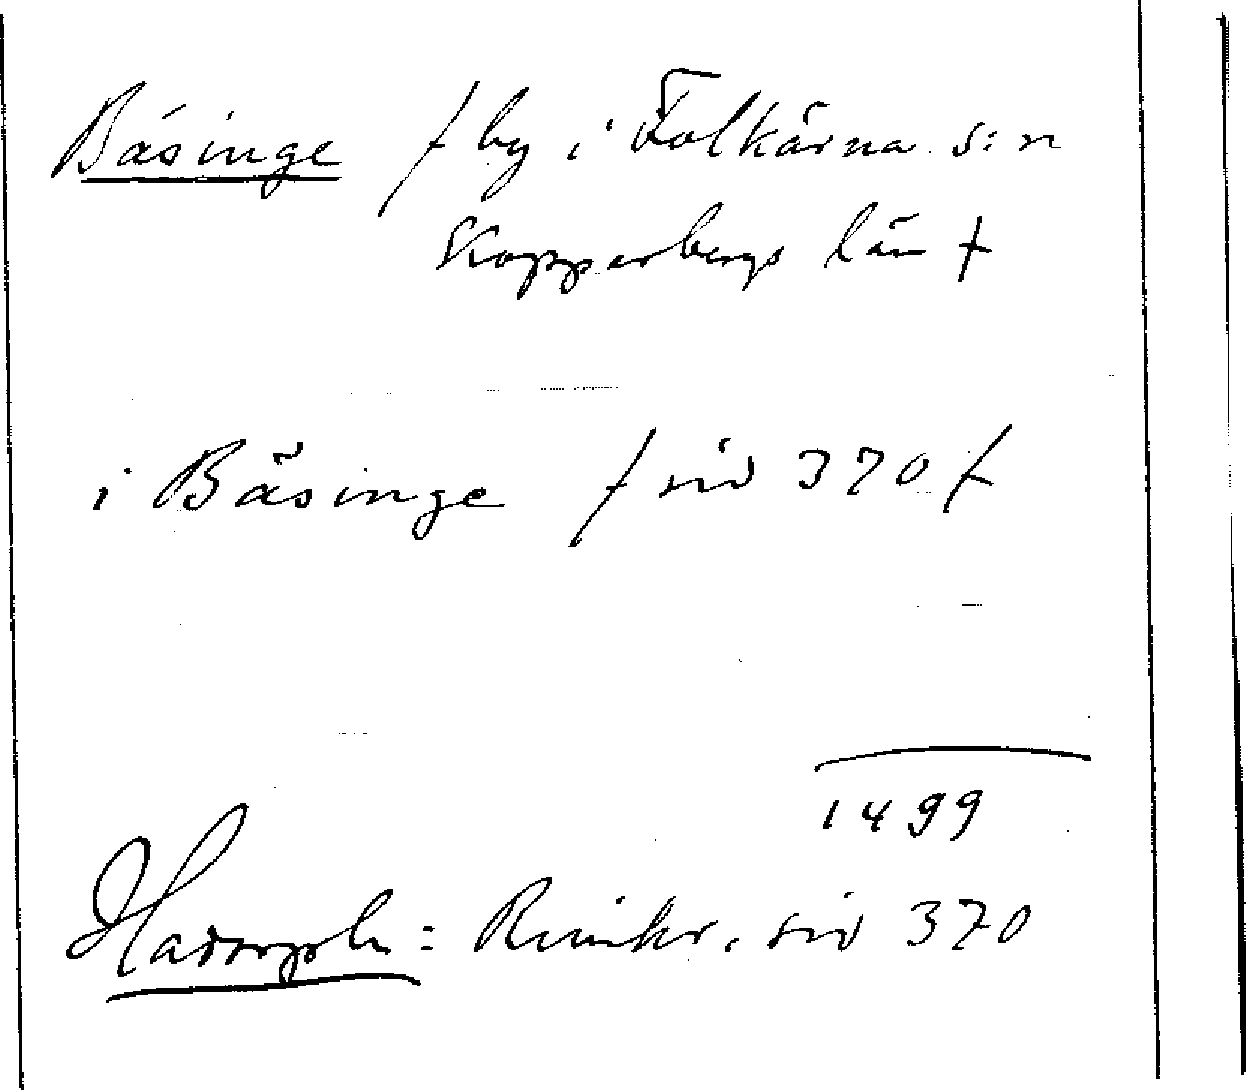 Bäsinge / by i Folkärna s:n
Kopparbergs län /
i Bäsinge / sid 370 /
1499
Hadorph: Rimkr. sid 370